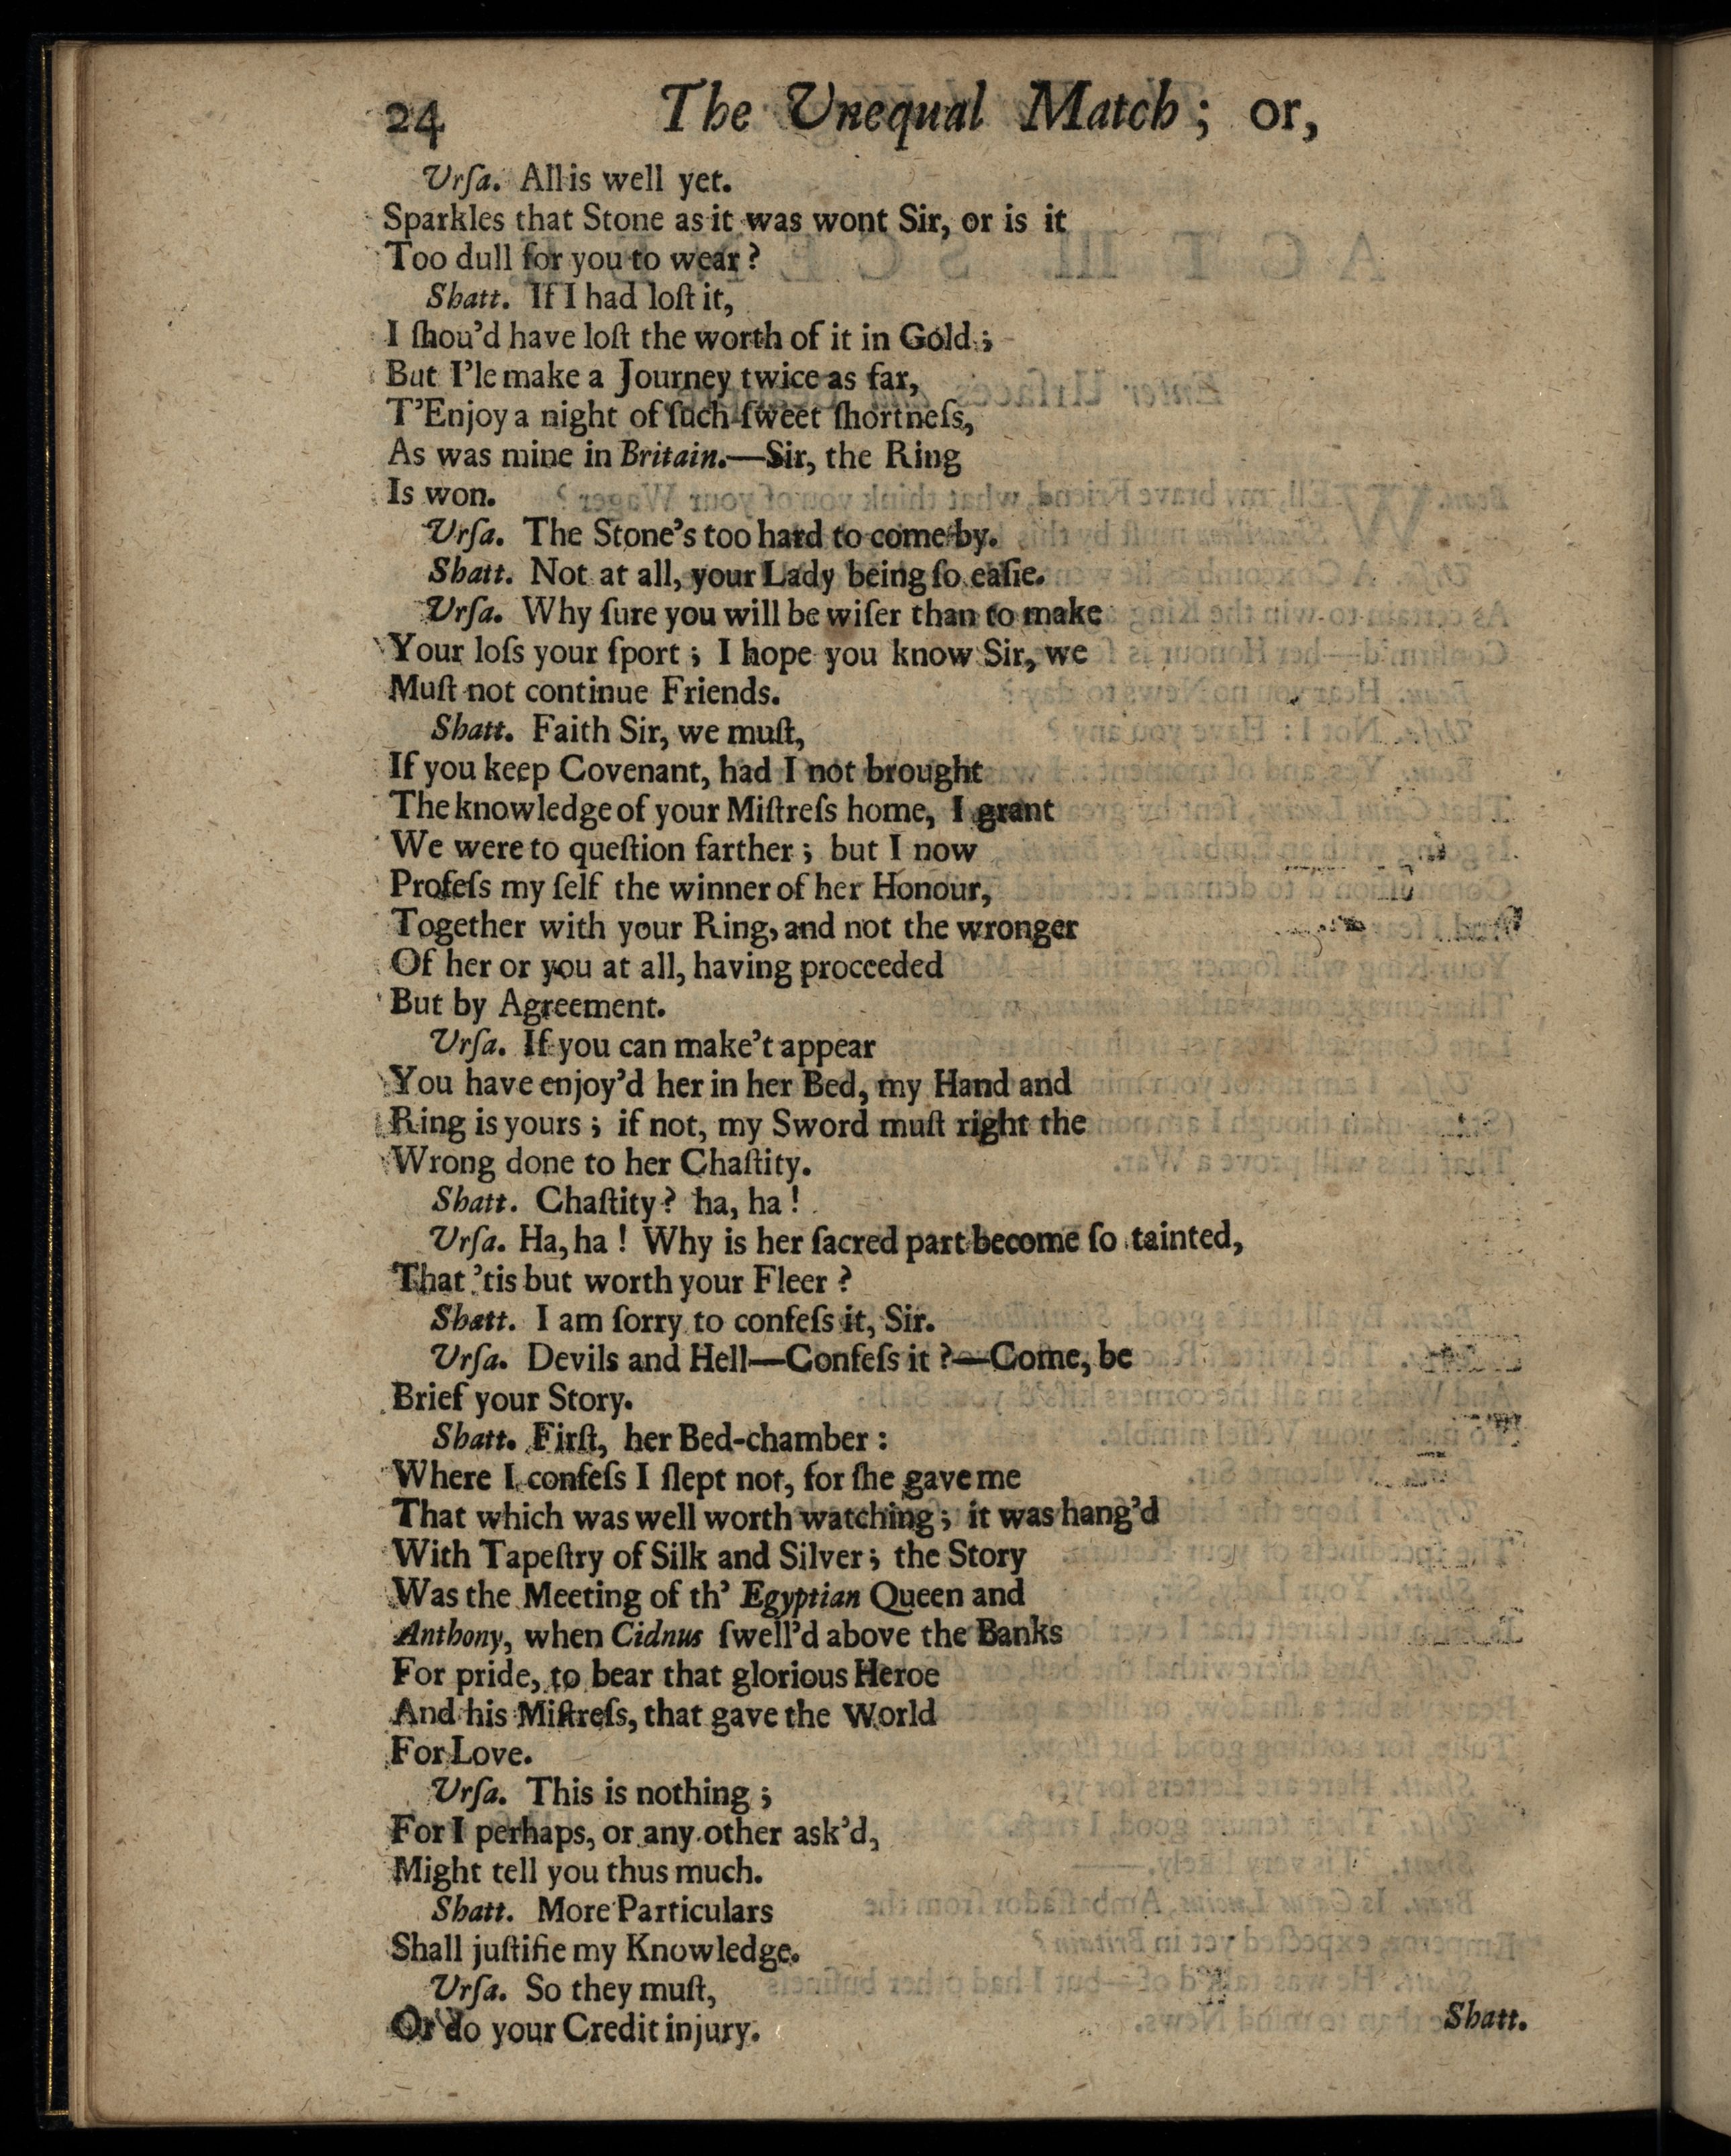 24 The Unequal Match; or,
Urſa. All is well yet.
Sparkles that Stone as it was wont Sir, or is it
Too dull for you to wear?
Shatt. If I had loſt it,
I ſhou'd have loſt the worth of it in Gold;
But I'le make a Journey twice as far,
T'Enjoy a night of ſuch ſweet ſhortneſs,
As was mine in Britain.—Sir, the Ring
Is won.
Urſa. The Stone's too hard to come by.
Shatt. Not at all, your Lady being ſo eaſie.
Urſa. Why ſure you will be wiſer than to make
Your loſs your ſport; I hope you know Sir, we
Muſt not continue Friends.
Shatt. Faith Sir, we muſt,
If you keep Covenant, had I not brought
The knowledge of your Miſtreſs home, I grant
We were to queſtion farther; but I now
Profeſs my ſelf the winner of her Honour,
Together with your Ring, and not the wronger
Of her or you at all, having proceeded
But by Agreement.
Urſa. If you can make't appear
You have enjoy'd her in her Bed, my Hand and
Ring is yours; if not, my Sword muſt right the
Wrong done to her Chaſtity.
Shatt. Chaſtity? ha, ha!
Urſa. Ha, ha! Why is her ſacred part become ſo tainted,
That 'tis but worth your Fleer?
Shatt. I am ſorry to confeſs it, Sir.
Urſa. Devils and Hell—Confeſs it?—Come, be
Brief your Story.
Shatt. Firſt, her Bed-chamber:
Where I confeſs I ſlept not, for ſhe gave me
That which was well worth watching; it was hang'd
With Tapeſtry of Silk and Silver; the Story
Was the Meeting of th' Egyptian Queen and
Anthony, when Cidnus ſwell'd above the Banks
For pride, to bear that glorious Heroe
And his Miſtreſs, that gave the World
For Love.
Urſa. This is nothing;
For I perhaps, or any other ask'd,
Might tell you thus much.
Shatt. More Particulars
Shall juſtifie my Knowledge.
Urſa. So they muſt,
Or do your Credit injury.
Shatt.